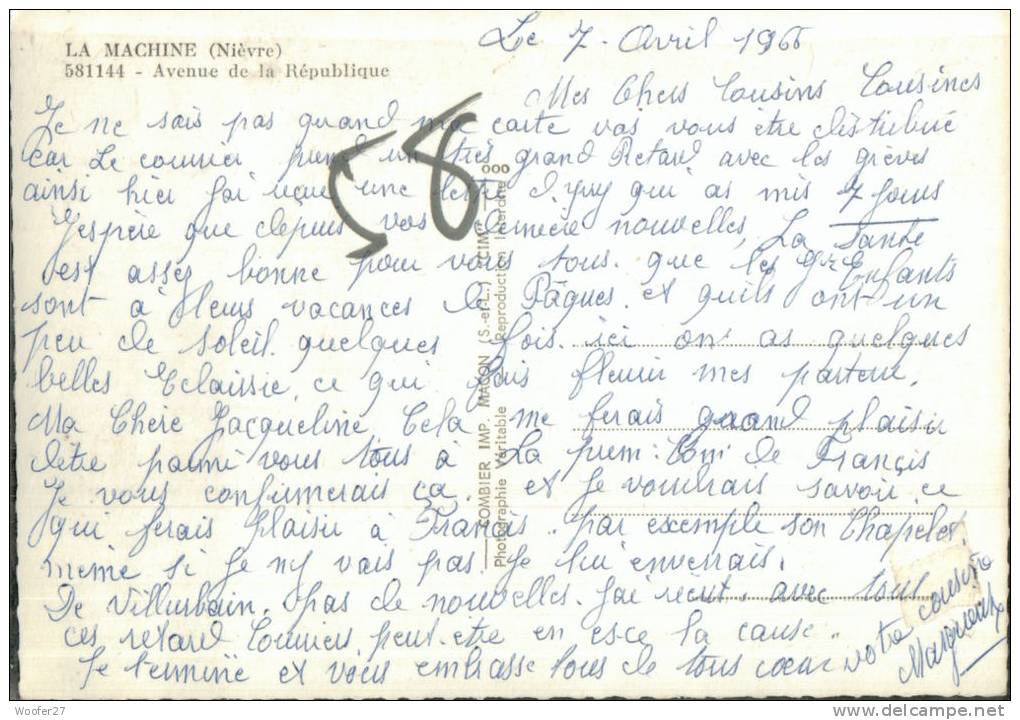 LA MACHINE (Nièvre)
581144 - Avenue de la République
Le 7 - Avril 1966
Mes Chers Cousins Cousines
Je ne sais pas quand ma carte vas vous être distribué
car Le courrier prend un très grand Retard avec les grèves
ainsi hier j'ai reçue une lettre d'yvry qui as mis 7 jours
J'espère que depuis vos dernière nouvelles, La Santé
est assez bonne pour vous tous. que les Enfants
sont à leurs vacances de Pâques. et quils ont un
peu de soleil. quelques fois. ici on as quelques
belles Eclaircie, ce qui fais fleurir mes parterre.
Ma Chère Jacqueline Cela me ferais grand plaisir
d'être parmi vous tous à La prem: Com de Francis
Je vous confirmerais ça. et Je voudrais savoir ce
qui ferais plaisir à Francis. par exemple son Chapelet.
même si Je ny vais pas. Je lui enverrais.
De Villurbain. pas de nouvelles. J'ai récrit. avec tous
ces retard Courriers, peut-être en es-ce la cause.
Je termine et vous embrasse tous de tous cœur votre cousine
Marguerite
8
COMBIER IMP. MACON (S.-et-L.) "CIM"
Photographie Véritable Reproduction Interdite
Woofer27
delcampe.net